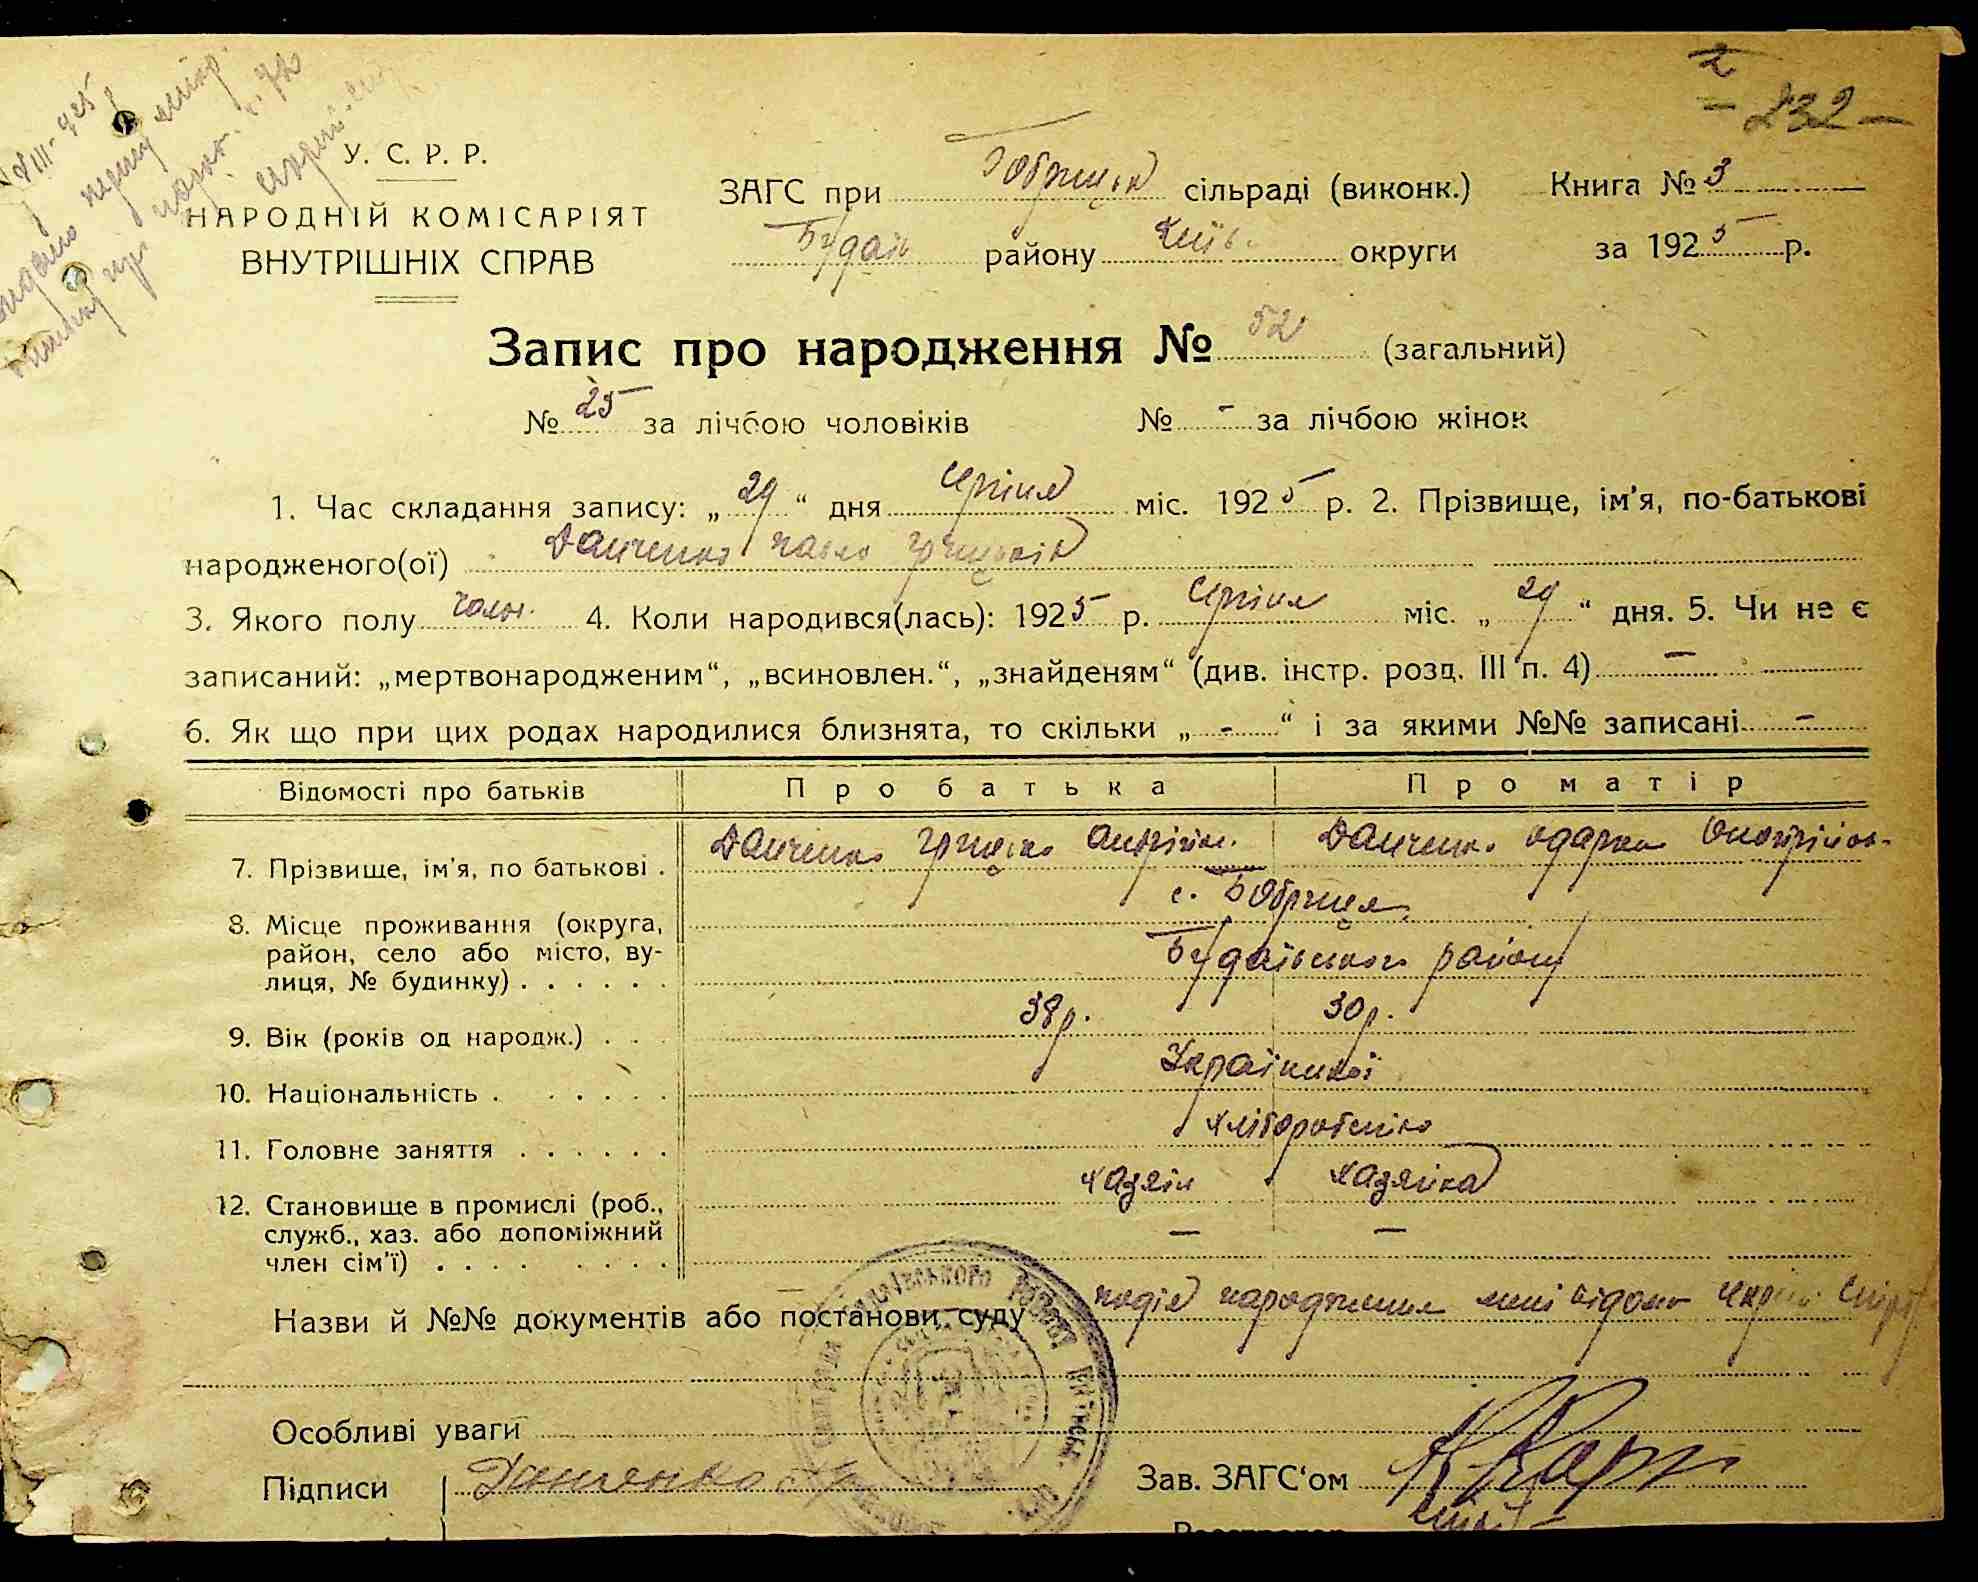 2
- 232 -
У. С. Р. Р.
НАРОДНІЙ КОМІСАРІЯТ
ВНУТРІШНІХ СПРАВ
ЗАГС при Бобрицьк сільраді (виконк.) Книга № 3
Будаїв району Київ. округи за 1925 р.
Запис про народження № 52 (загальний)
№ 25 за лічбою чоловіків № - за лічбою жінок
1. Час складання запису: „29“ дня серпня міс. 1925 р. 2. Прізвище, ім’я, по-батькові
народженого(ої) Данченко Павло Грицьків
3. Якого полу чолов. 4. Коли народився(лась): 1925 р. серпня міс. „29“ дня. 5. Чи не є
записаний: „мертвонародженим“, „всиновлен.“, „знайденям“ (див. інстр. розд. III п. 4) —
6. Як що при цих родах народилися близнята, то скільки „-“ і за якими №№ записані -
Відомості про батьків Про батька Про матір
7. Прізвище, ім’я, по батькові . Данченко Грицько Андрійов. Данченко Одарка
8. Місце проживання (округа, с. Бобриця
район, село або місто, ву- Будаївського району
лиця, № будинку) . . . . . .
9. Вік (років од народж.) . . . 38 р. 30 р.
10. Національність . . . . . . Української
11. Головне заняття . . . . . . хліборобство
12. Становище в промислі (роб., хазяїн хазяйка
служб., хаз. або допоміжний — —
член сім’ї) . . . . . . . .
Назви й №№ документів або постанови суду подія народження мені відома
Особливі уваги
Підписи Данченко Зав. ЗАГС‘ом